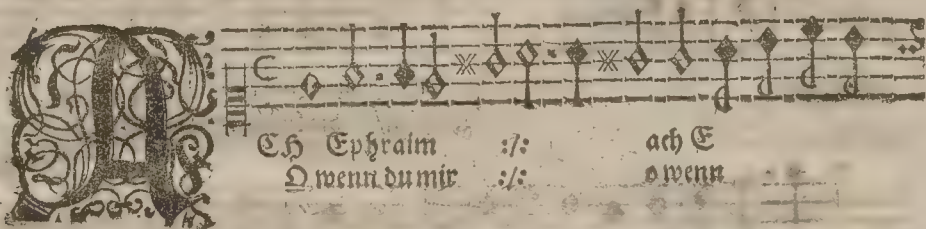 ACH Ephraim :/: ach E
O wenn du mir :/: o wenn